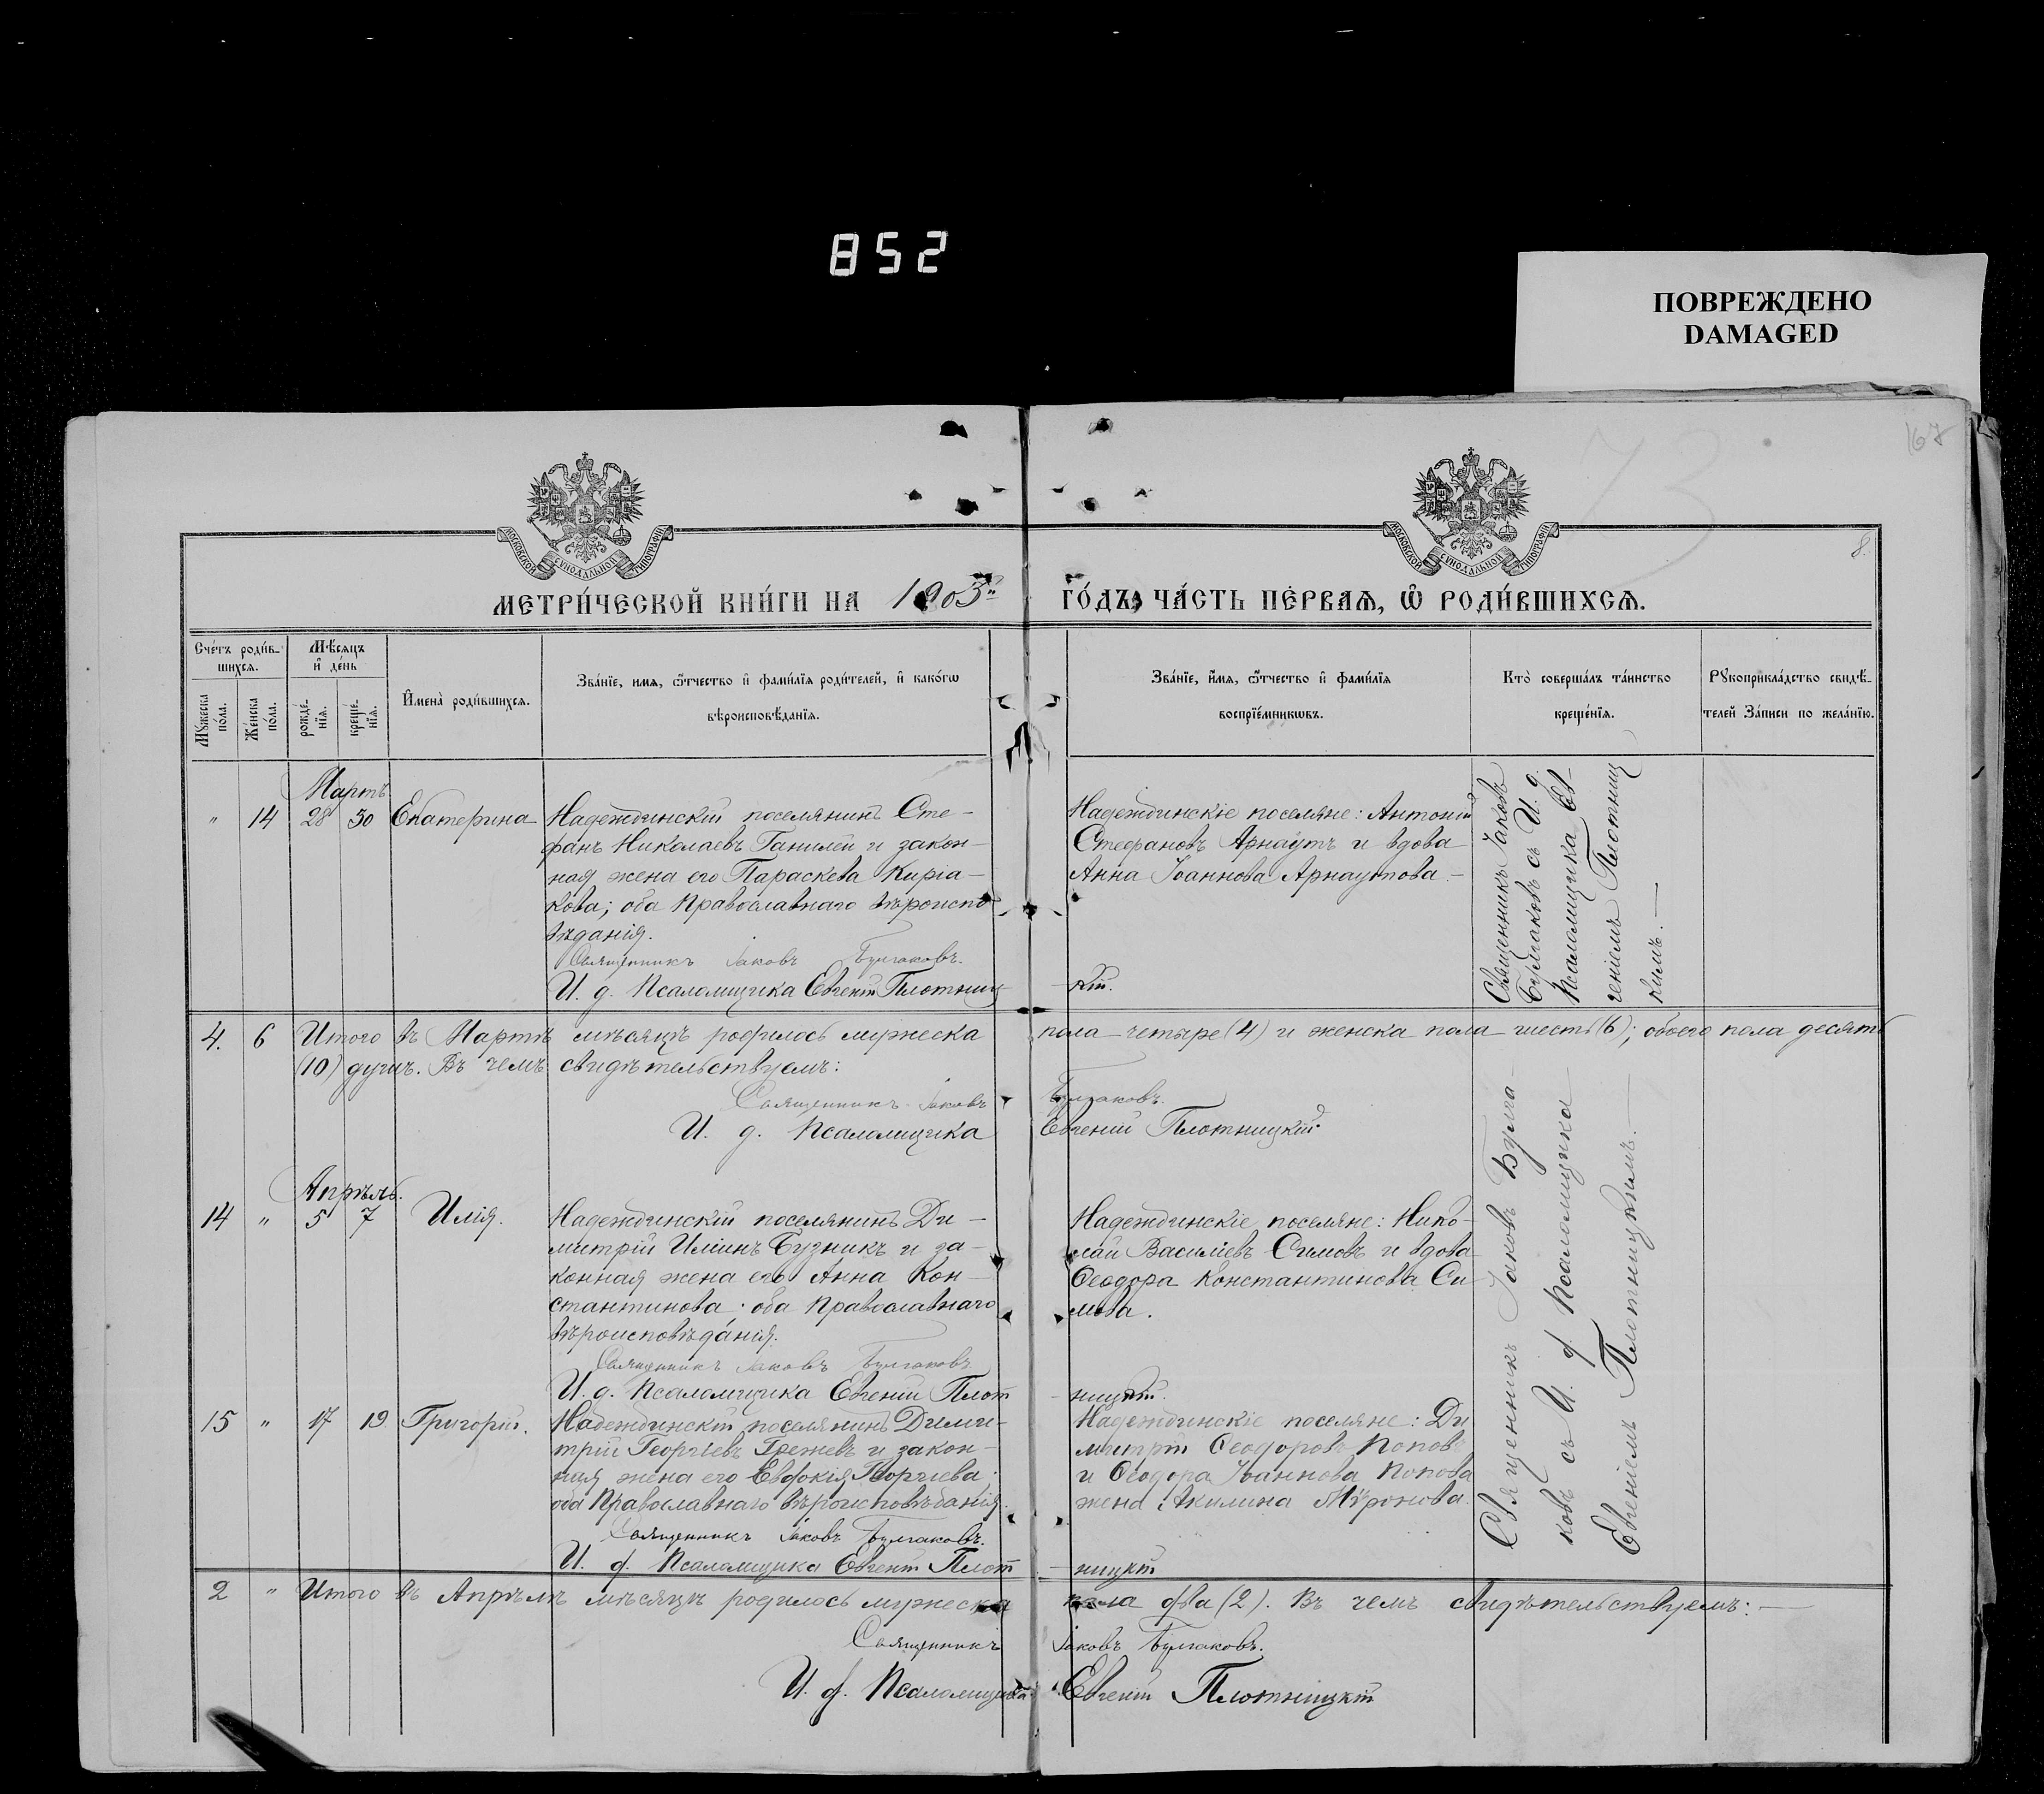 852
ПОВРЕЖДЕНО
DAMAGED
167
73
8.
МОСКОВСКОЙ СѴНОДАЛЬНОЙ ТИПОГРАФІИ
МОСКОВСКОЙ СѴНОДАЛЬНОЙ ТИПОГРАФІИ
МЕТРИ́ЧЕСКОЙ КНИ́ГИ НА 1903й ГО́ДЪ, ЧА́СТЬ ПЕ́РВАѦ, Ѿ РОДИ́ВШИХСѦ.
Сче́тъ роди́в-
шихсѧ.
Мꙋ́жеска по́ла.
Же́нска по́ла.
Мѣ́сѧцъ
и де́нь
рожде́-
нїѧ.
креще́-
нїѧ.
Имена̀ роди́вшихсѧ.
Зва́нїе, имѧ, ѻ҆́тчество и фами́лїѧ роди́телей, и како́гѡ
вѣроисповѣ́данїѧ.
Зва́нїе, и́мѧ, ѻ҆́тчество и фами́лїѧ
воспрїе́мникѡвъ.
Кто̀ соверша́лъ та́инство
креще́нїѧ.
Рꙋкоприкла́дство свидѣ́-
телей за́писи по жела́нїю.
Мартъ
" 14 28 30 Екатерина
Надеждинскій поселянинъ Сте-
фанъ Николаевъ Ганилей и закон-
ная жена его Параскева Киріа-
кова; оба Православнаго вѣроиспо-
вѣданія.
Священникъ Іаковъ Булгаковъ.
И. д. Псаломщика Евгеній Плотниц-
кій.
Надеждинскіе поселяне: Антоній
Стефановъ Арнаутъ и вдова
Анна Іоаннова Арнаутова.-
Священникъ Іаковъ
Булгаковъ съ И. д.
Псаломщика Ев-
геніемъ Плотниц
кимъ.-
4. 6 Итого въ Мартѣ мѣсяцѣ родилось мужеска пола четыре (4) и женска пола шесть (6); обоего пола десять
(10) душъ. Въ чемъ свидѣтельствуемъ:
Священникъ Іаковъ Булгаковъ.
И. д. Псаломщика Евгеній Плотницкій.
Апрѣль.
14 " 5 7 Илія.
Надеждинскій поселянинъ Ди-
митрій Иліинъ Бузникъ и за-
конная жена его Анна Кон-
стантинова; оба Православнаго
вѣроисповѣданія.
Священникъ Іаковъ Булгаковъ
И. д. Псаломщика Евгеній Плот-
ницкій.
Надеждинскіе поселяне: Нико-
лай Василіевъ Симовъ и вдова
Ѳеодора Константинова Си-
мова.
15 " 17 19 Григорій.
Надеждинскій поселянинъ Дими-
трій Георгіевъ Грежевъ и закон-
ная жена его Евдокія Георгіева;
оба Православнаго вѣроисповѣданія.
Священникъ Іаковъ Булгаковъ.
И. д. Псаломщика Евгеній Плот-
ницкій
Надеждинскіе поселяне: Ди
митрій Ѳеодоровъ Поповъ
и Ѳеодора Іоаннова Попова
жена Акилина Мѵронова.
Священникъ Іаковъ Булга-
ковъ съ И. д. Псаломщика
Евгеніемъ Плотницкимъ.
2 " Итого въ Апрѣлѣ мѣсяцѣ родилось мужеска пола два (2). Въ чемъ свидѣтельствуемъ:-
Священникъ Іаковъ Булгаковъ.
И. д. Псаломщика Евгеній Плотницкій